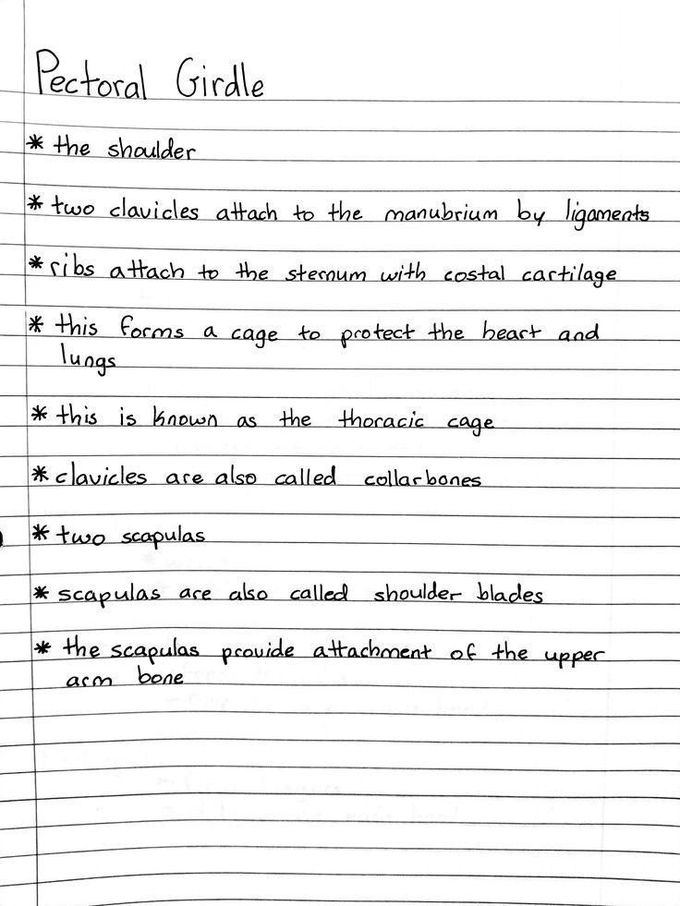 Pectoral Girdle
* the shoulder
* two clavicles attach to the manubrium by ligaments
* ribs attach to the sternum with costal cartilage
* this forms a cage to protect the heart and
lungs
* this is known as the thoracic cage
* clavicles are also called collarbones
* two scapulas
* scapulas are also called shoulder blades
* the scapulas provide attachment of the upper
arm bone